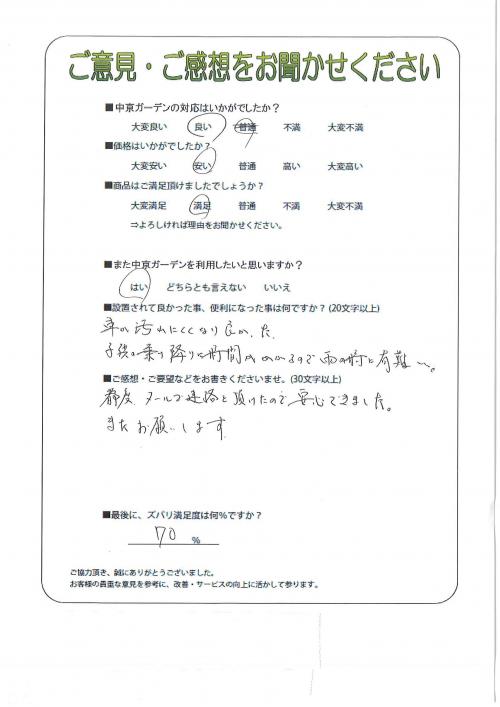 ご意見・ご感想をお聞かせください
■中京ガーデンの対応はいかがでしたか？
大変良い 良い 普通 不満 大変不満
■価格はいかがでしたか？
大変安い 安い 普通 高い 大変高い
■商品はご満足頂けましたでしょうか？
大変満足 満足 普通 不満 大変不満
⇒よろしければ理由をお聞かせください。
■また中京ガーデンを利用したいと思いますか？
はい どちらとも言えない いいえ
■設置されて良かった事、便利になった事は何ですか？(20文字以上)
車の汚れにくくなり良かった
子供の乗り降りに時間がかかるので雨の時に有難い。
■ご感想・ご要望などをお書きくださいませ。(30文字以上)
メールで連絡を頂けたので安心できました。
またお願いします
■最後に、ズバリ満足度は何％ですか？
70 ％
ご協力頂き、誠にありがとうございました。
お客様の貴重な意見を参考に、改善・サービスの向上に活かして参ります。